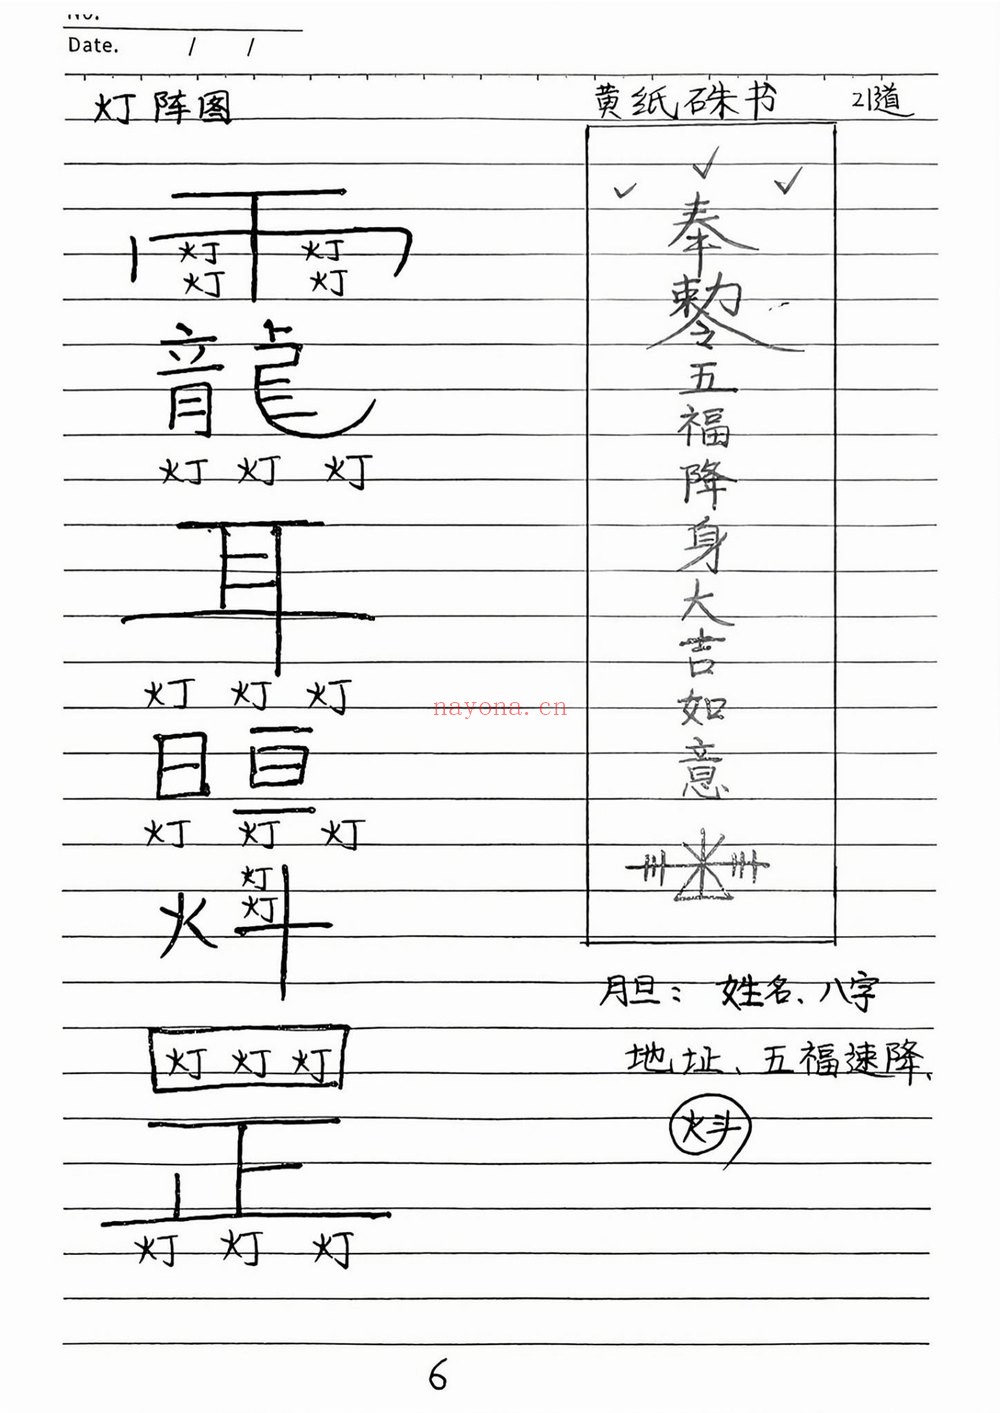 Date. / /
灯阵图
雨
灯 灯
灯 灯
龍
灯 灯 灯
耳
灯 灯 灯
日 亘
灯 灯 灯
灯
灯
火
灯 灯 灯
正
灯 灯 灯
黄纸硃书 21道
奉
敕
令
五
福
降
身
大
吉
如
意
月旦：姓名、八字
地址、五福速降、
nayona.cn
6